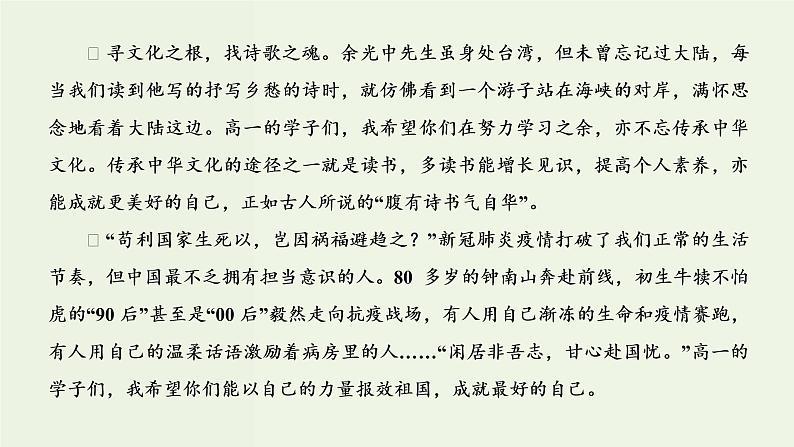 寻文化之根，找诗歌之魂。余光中先生虽身处台湾，但未曾忘记过大陆，每
当我们读到他写的抒写乡愁的诗时，就仿佛看到一个游子站在海峡的对岸，满怀思
念地看着大陆这边。高一的学子们，我希望你们在努力学习之余，亦不忘传承中华
文化。传承中华文化的途径之一就是读书，多读书能增长见识，提高个人素养，亦
能成就更美好的自己，正如古人所说的“腹有诗书气自华”。
“苟利国家生死以，岂因祸福避趋之？”新冠肺炎疫情打破了我们正常的生活
节奏，但中国最不乏拥有担当意识的人。80 多岁的钟南山奔赴前线，初生牛犊不怕
虎的“90 后”甚至是“00 后”毅然走向抗疫战场，有人用自己渐冻的生命和疫情赛跑，
有人用自己的温柔话语激励着病房里的人……“闲居非吾志，甘心赴国忧。”高一的
学子们，我希望你们能以自己的力量报效祖国，成就最好的自己。